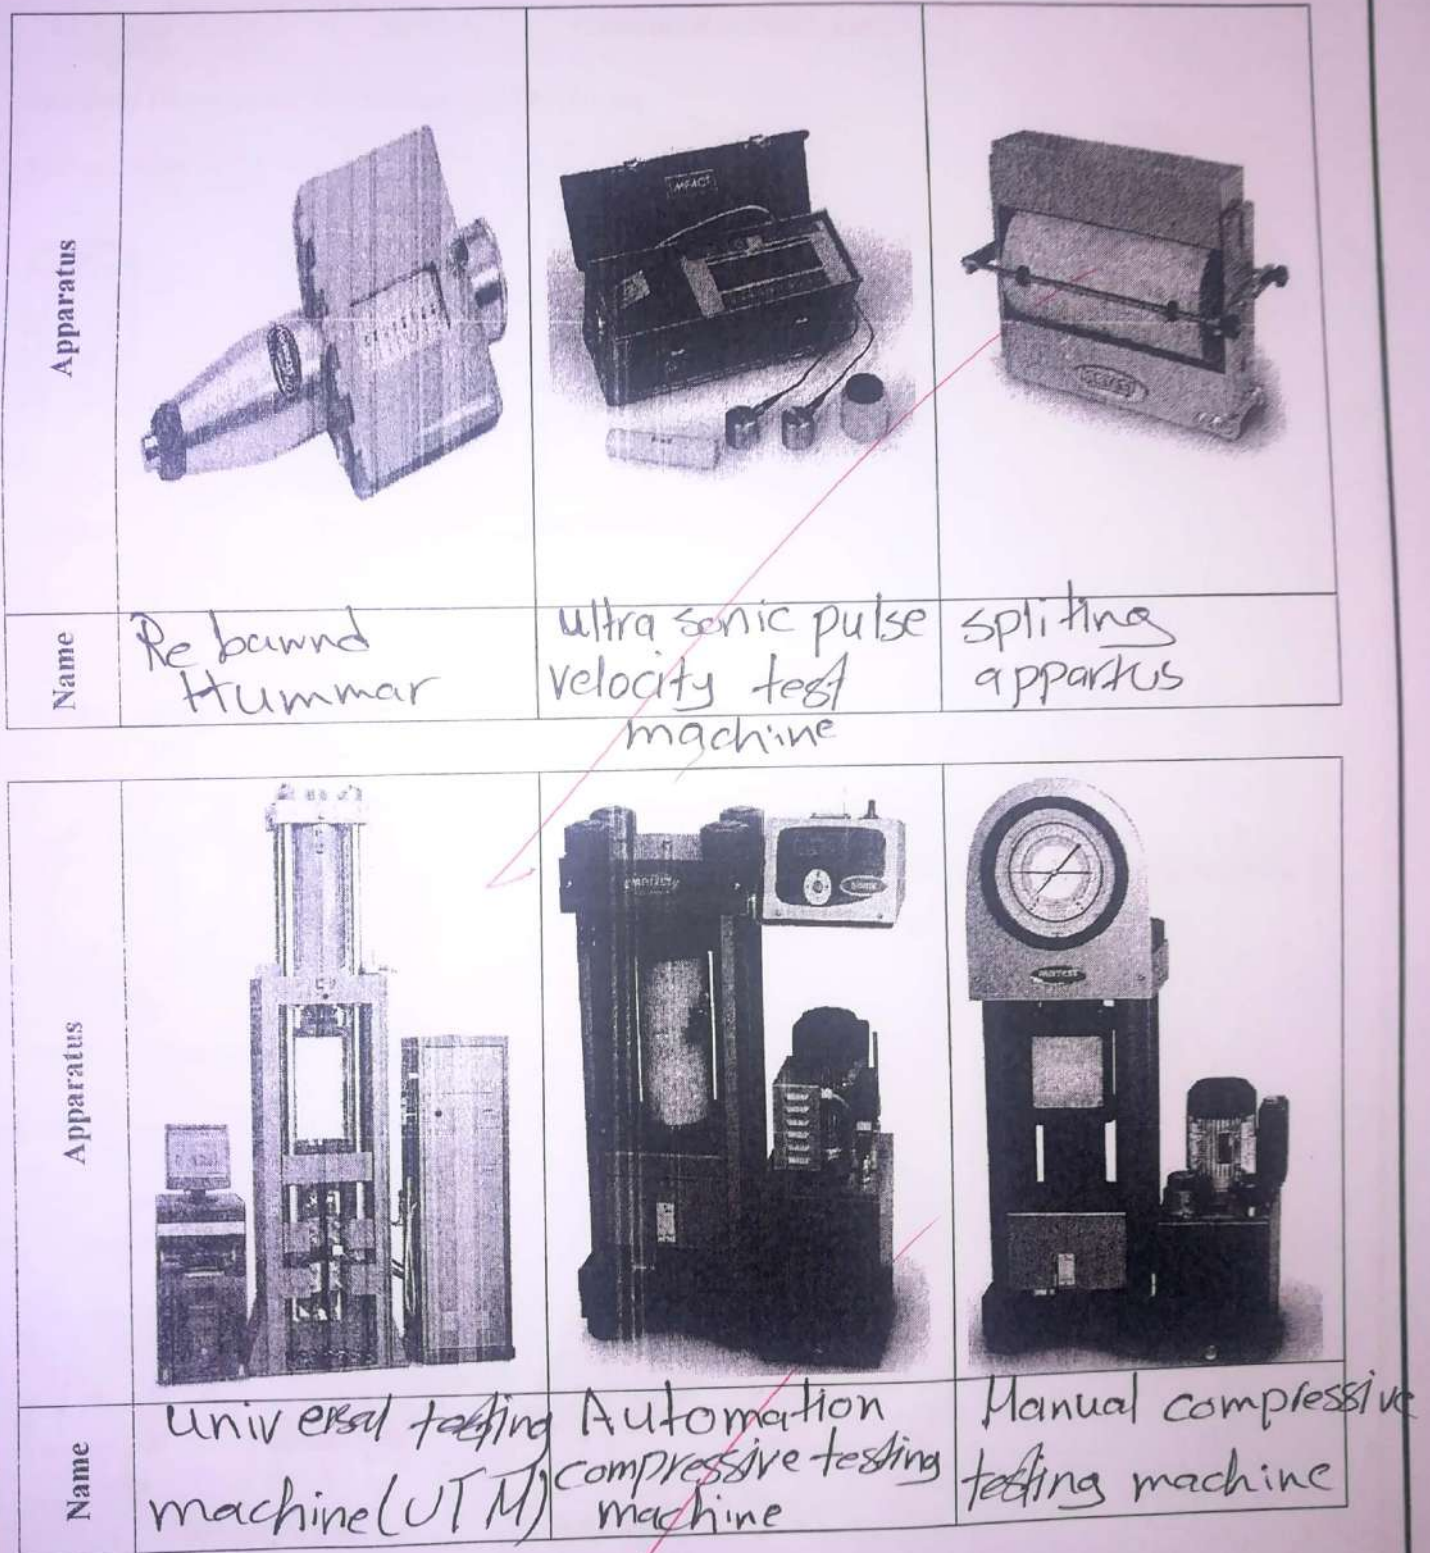 Apparatus
IMPACT
Name
Re bawnd
Hummar
ultra sonic pulse
velocity test
machine
spliting
appartus
Apparatus
Name
univ ersal testing
machine (UTM)
Automation
compressive testing
machine
Manual compressive
testing machine